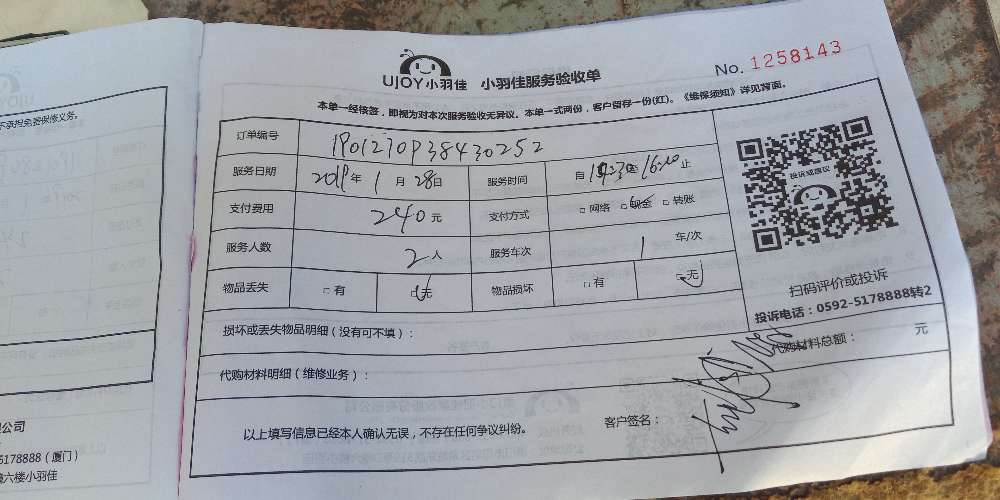 UJOY小羽佳 小羽佳服务验收单
No. 1258143
本单一经核签，即视为对本次服务验收无异议。本单一式两份，客户留存一份(红)。《维保须知》详见背面。
订单编号
服务日期 2019年 1月 28日 服务时间 自 至 止
支付费用 240元 支付方式 □网络 □现金 □转账
服务人数 2人 服务车次 1 车/次
物品丢失 □有 □无 物品损坏 □有 □无
投诉或建议
扫码评价或投诉
投诉电话：0592-5178888转2
损坏或丢失物品明细（没有可不填）：
代购材料明细（维修业务）： 代购材料总额： 元
以上填写信息已经本人确认无误，不存在任何争议纠纷。 客户签名：
不承担免费保修义务。
公司
5178888（厦门）
六楼小羽佳